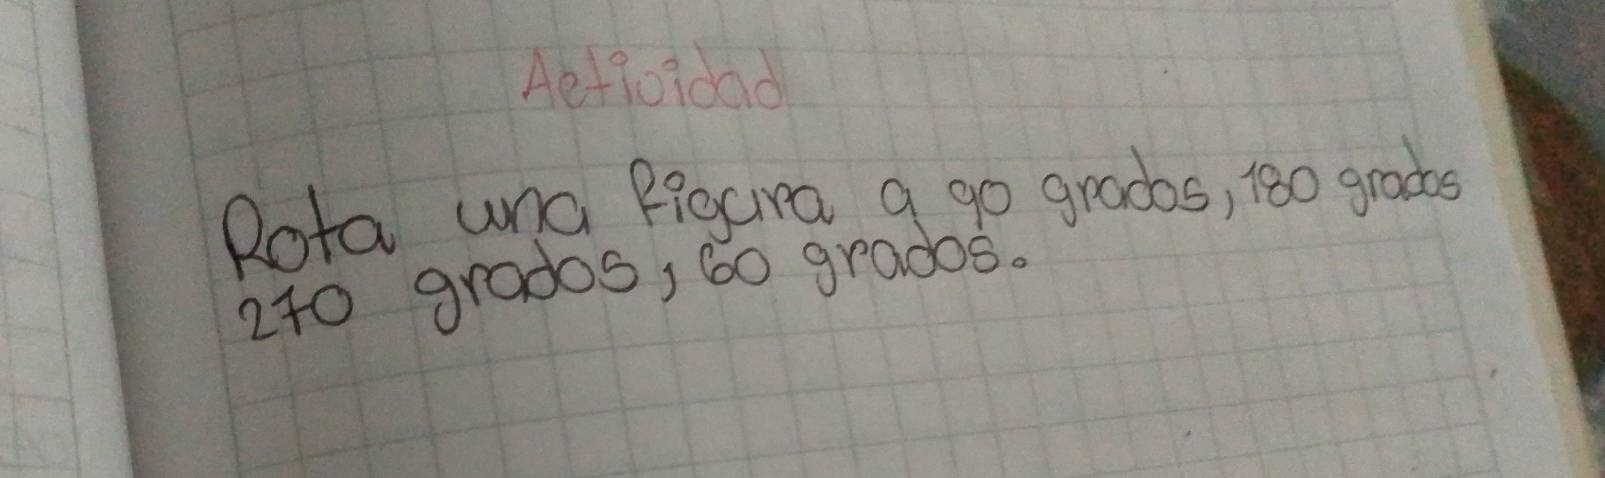 Actividad
Rota una figura a 90 grados, 180 grados
270 grados, 60 grados.